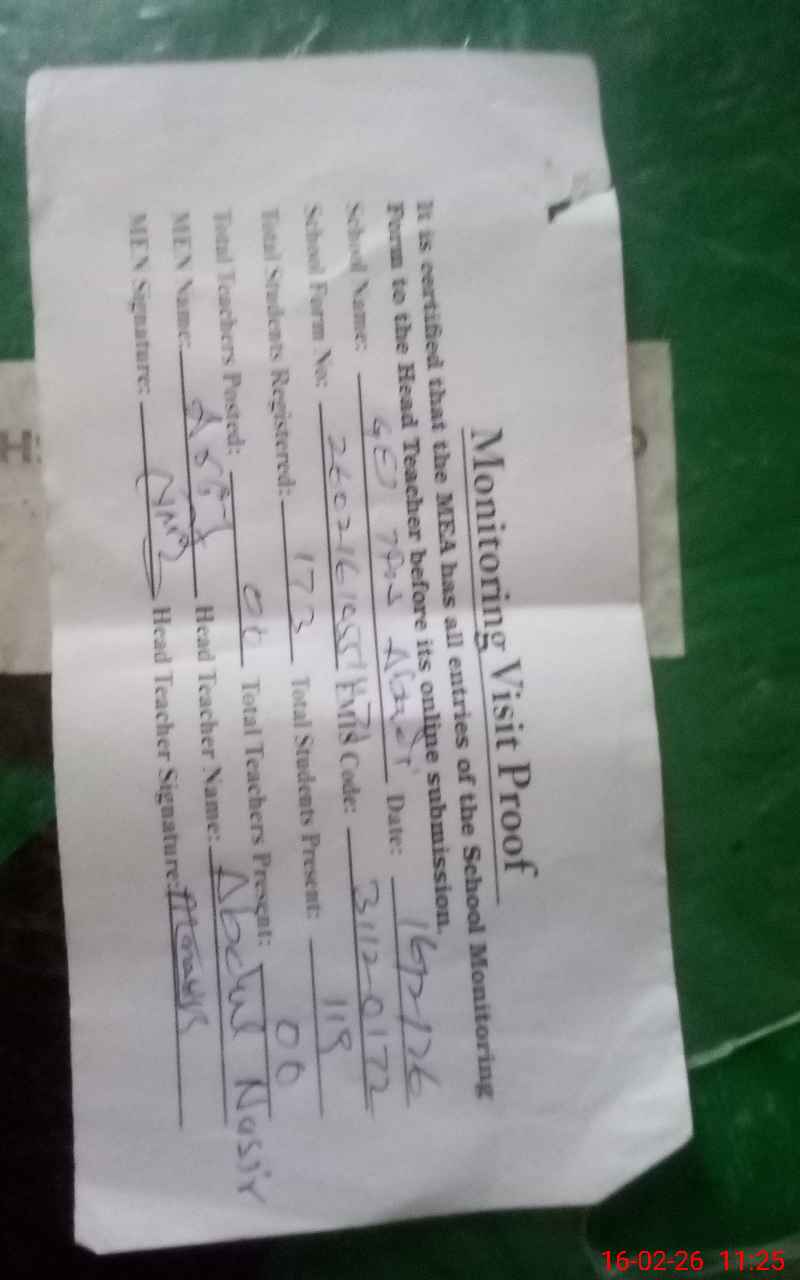 Monitoring Visit Proof
It is certified that the MEA has all entries of the School Monitoring
Form to the Head Teacher before its online submission.
School Name: Date: 16/2/26
School Form No: EMIS Code: 31120172
Total Students Registered: 173 Total Students Present: 119
Total Teachers Posted: 06 Total Teachers Present: 06
MEA Name: Head Teacher Name: Abdul Nasir
MEA Signature: Head Teacher Signature:
16-02-26 11:25